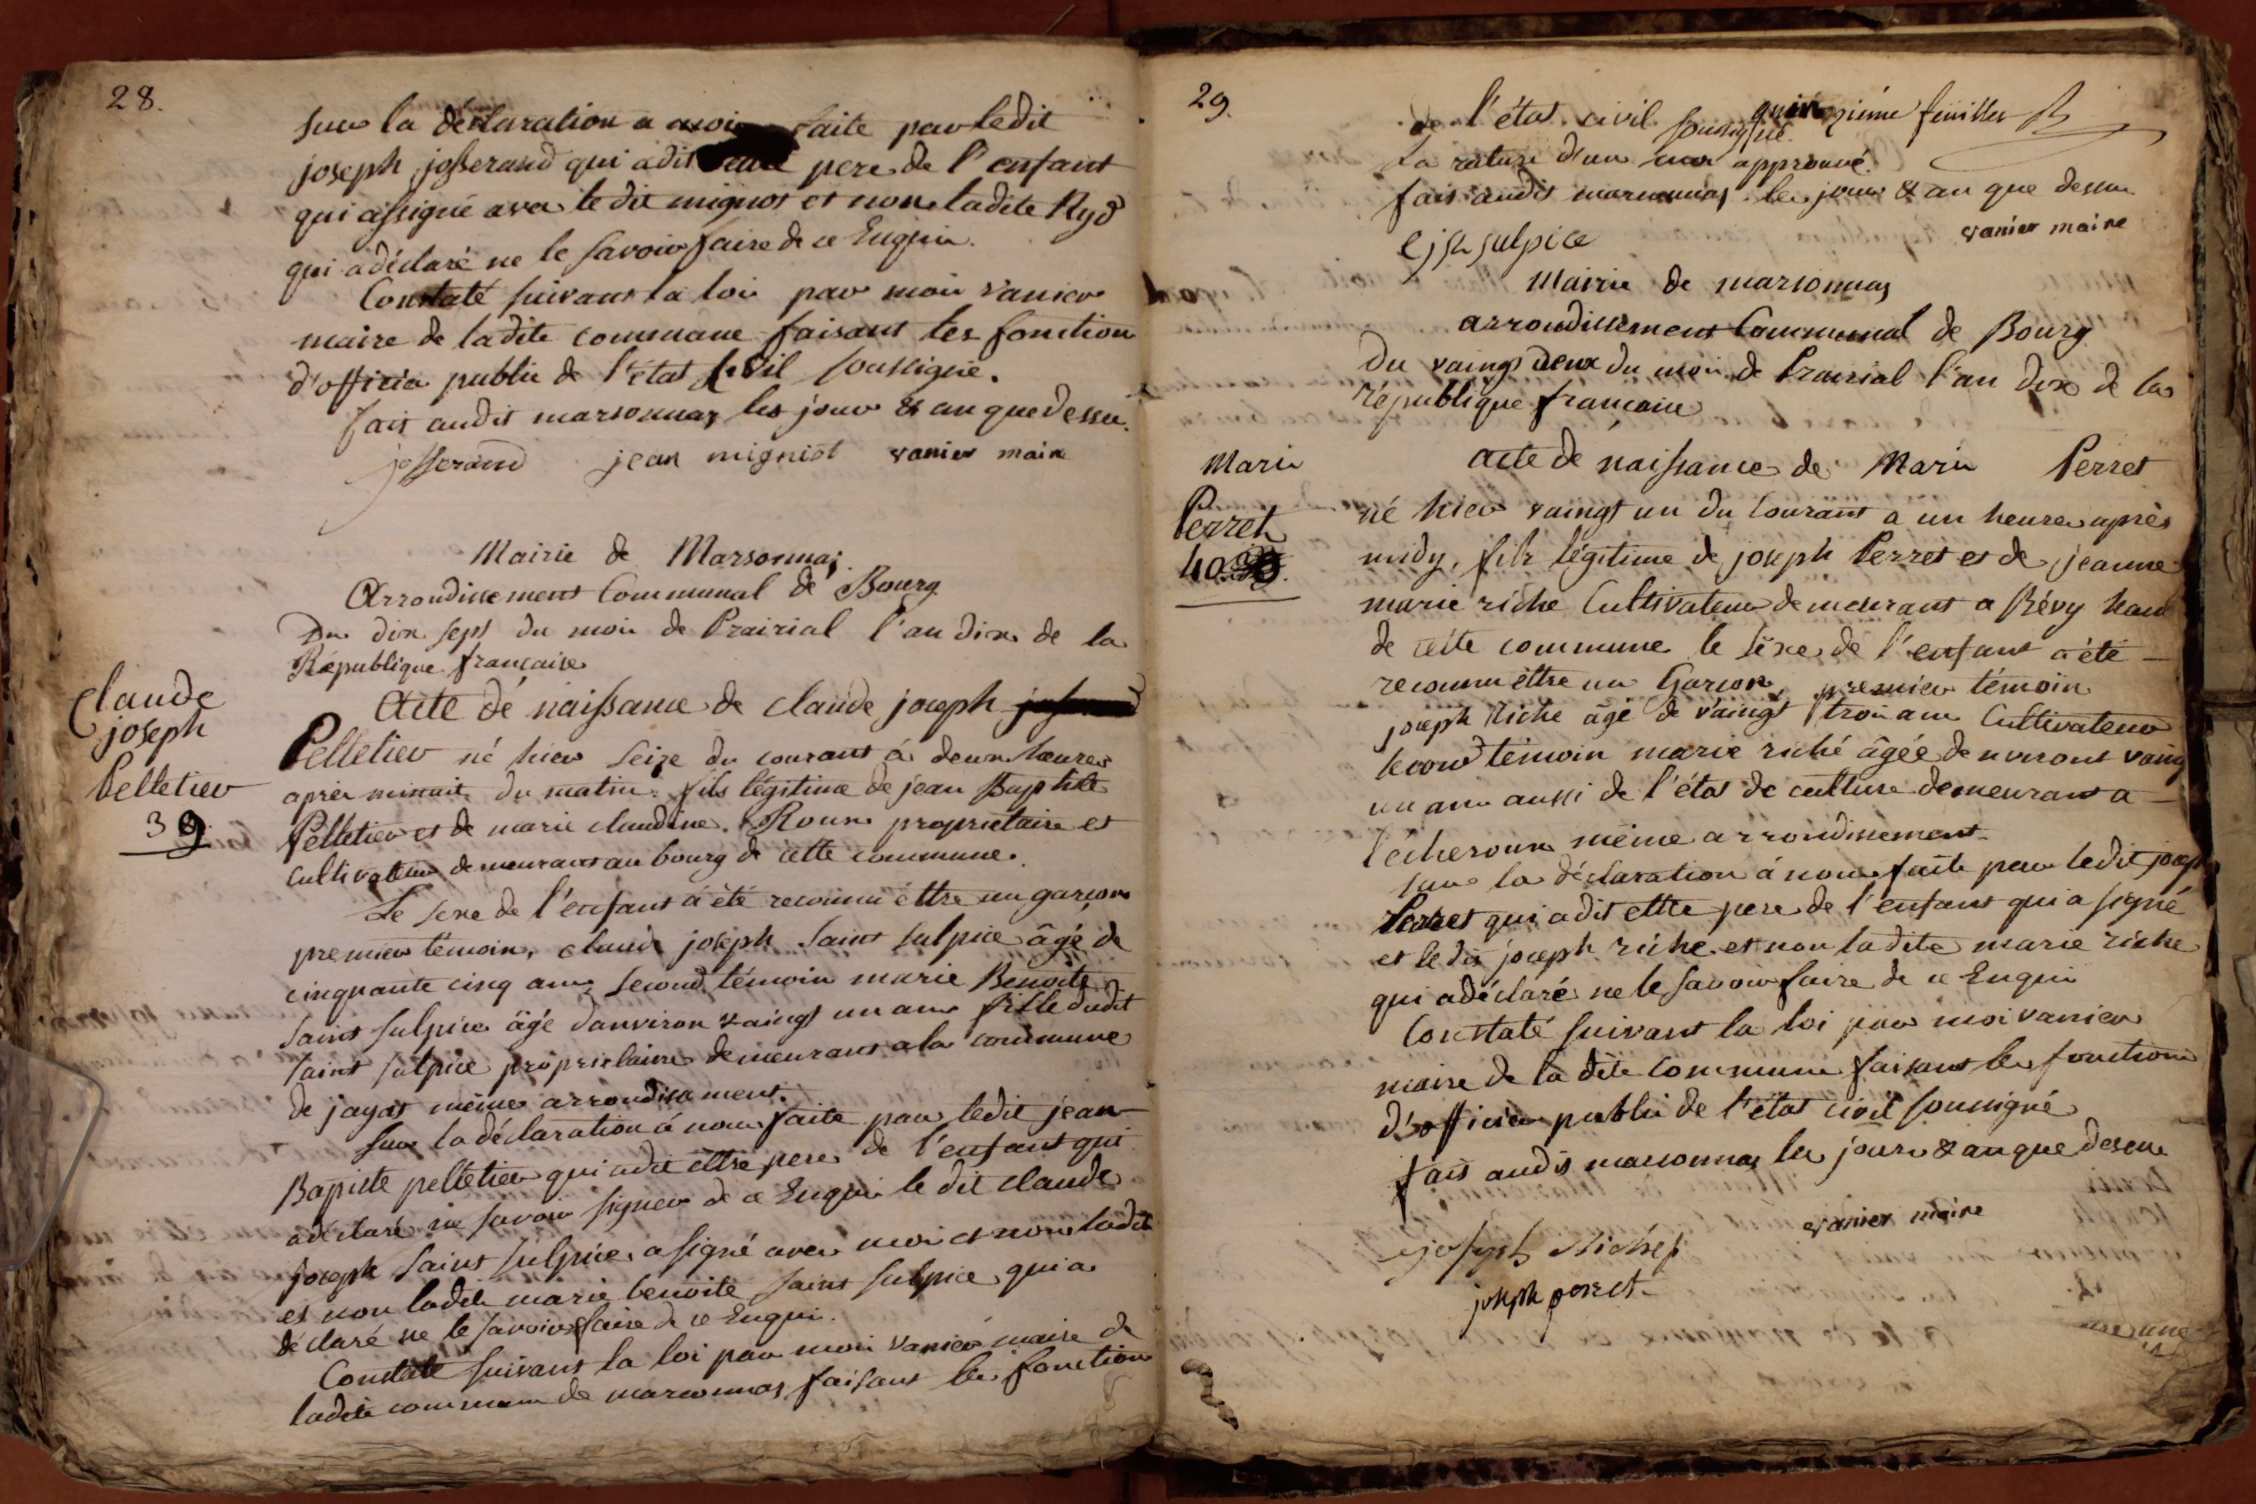 28.
sur la déclaration a moi faite par ledit
joseph josserand qui a dit pere de l'enfant
qui a signé avec le dit mignot et non ladite Ryd
qui a déclaré ne le savoir faire de ce Enquie.
Constaté suivant la loi par moi vanier
maire de ladite commune faisant les fonction
d'officier public de l'état civil soussigné.
fait audit marsonnas les jour & an que dessu.
josserand jean migniot vanier maire
Mairie de Marsonnas
Arrondissement Communal de Bourg
Du dix sept du moi de Prairial l'an dix de la
République francaise
Claude
joseph
Pelletier
39
Acte dé naissance de claude joseph
Pelletier né hier seize du courant à deux heures
aprés minuit du matin. fils légitime de jean Baptiste
Pelletier et de marie claudine Roux proprietaire et
cultivateur demeurant au bourg de cette commune.
Le sexe de l'enfant à été reconnu éttre un garcon
premier témoin, claude joseph saint sulpice âgé de
cinquante cinq ans second témoin marie Benoite
saint sulpice âgé danviron vaingt un ans fille dudit
saint sulpice propriétaire demeurant a la commune
de jayat même arrondissement.
Sur la déclaration à nous faite par ledit jean
Baptiste pelletier qui a dit éttre pere de l'enfant qui
a déclaré ne savoir signer de ce Enquie le dit claude
joseph saint sulpice a signé avec moi et non ladite
et non ladite marie benoite saint sulpice qui a
déclaré ne le savoir faire de ce Enqui.
Constaté suivant la loi par moi vanier maire de
ladite commune de marsonnas faisant les fonction
29.
quinzième feuillet
de l'état civil soussigné
La rature d'un mot approuvé.
fait audit marsonnas les jour & an que dessu
vanier maire
cj st sulpice
Mairie de marsonnas
arrondissement Communal de Bourg
Du vaingt deux du moi de Prairial l'an dix de la
République francaise
Marie
Perret
40
acte dé naissance de Marin Perret
né hier vaingt un du courant a un heures après
midy, fils légitime de joseph Perret et de jeanne
marie riche Cultivateur demeurant a Bévy hau
de cette commune le sexe de l'enfant a été
reconnu éttre un Garcon, premier témoin
joseph Riche âgé de vaingt troi ans Cultivateur
second témoin marie riché âgée denviront vaing
un ans aussi de l'état de culture demeurant a
l'écheroux même arrondissement
sur la déclaration à nous faite par le dit joseph
Perret qui a dit ettre pere de l'enfant qui a signé
et le dit joseph riche et non la dite marie riche
qui a déclaré ne le savoir faire de ce Enqui
Constaté suivant la loi par moi vanier
maire de la dite commune faisant les fonctions
d'officier public de l'état civil soussigné
fait audit marsonnas les jour & an que dessu
vanier maire
joseph Riche
joseph perret